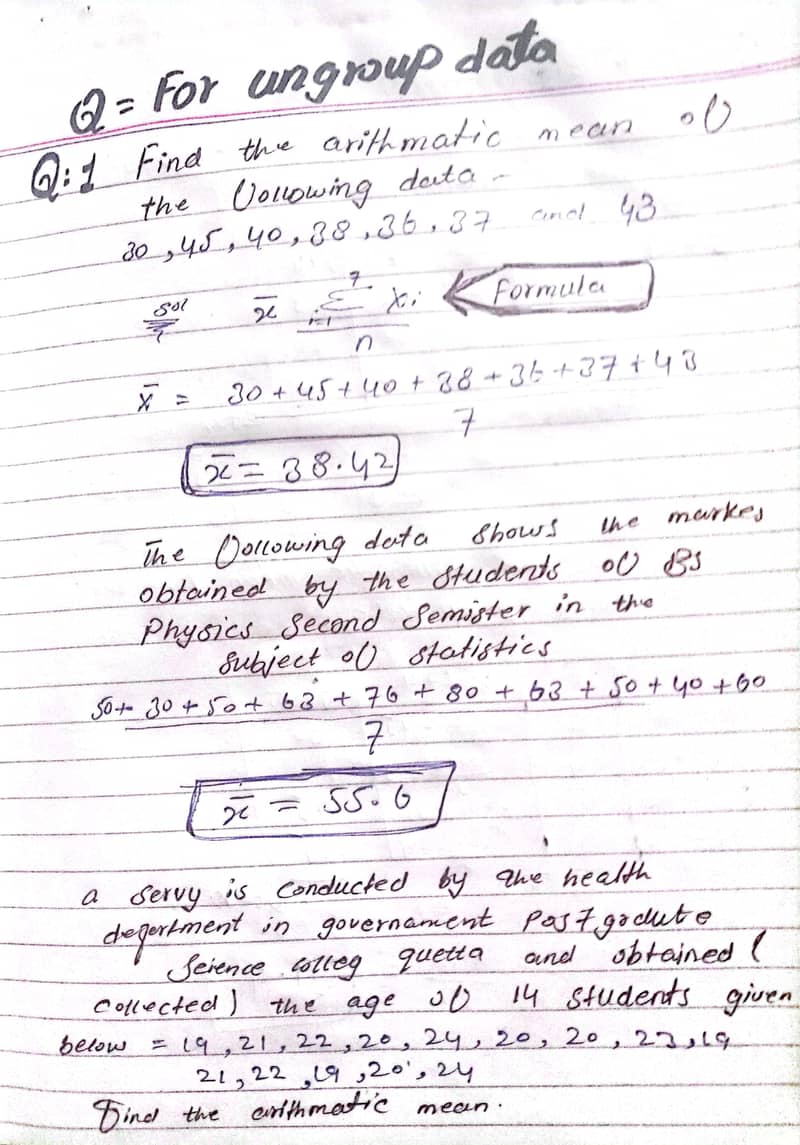 Q = For ungroup data
Q:1 Find the arithmatic mean of
the following data -
30, 45, 40, 38, 36, 37 and 43
sol x̄ 7 Σ i=1 xi Formula
n
x̄ = 30 + 45 + 40 + 38 + 36 + 37 + 43
7
x̄ = 38.42
The following data shows the markes
obtained by the students of BS
Physics Second Semister in the
subject of statistics
50 + 30 + 50 + 63 + 76 + 80 + 63 + 50 + 40 + 60
7
x̄ = 55.6
a servy is conducted by the health
depertment in governament Postgradute
Science colleg quetta and obtained (
collected) the age of 14 students given
below = 19, 21, 22, 20, 24, 20, 20, 23, 19
21, 22, 19, 20, 24
Find the arithmatic mean.